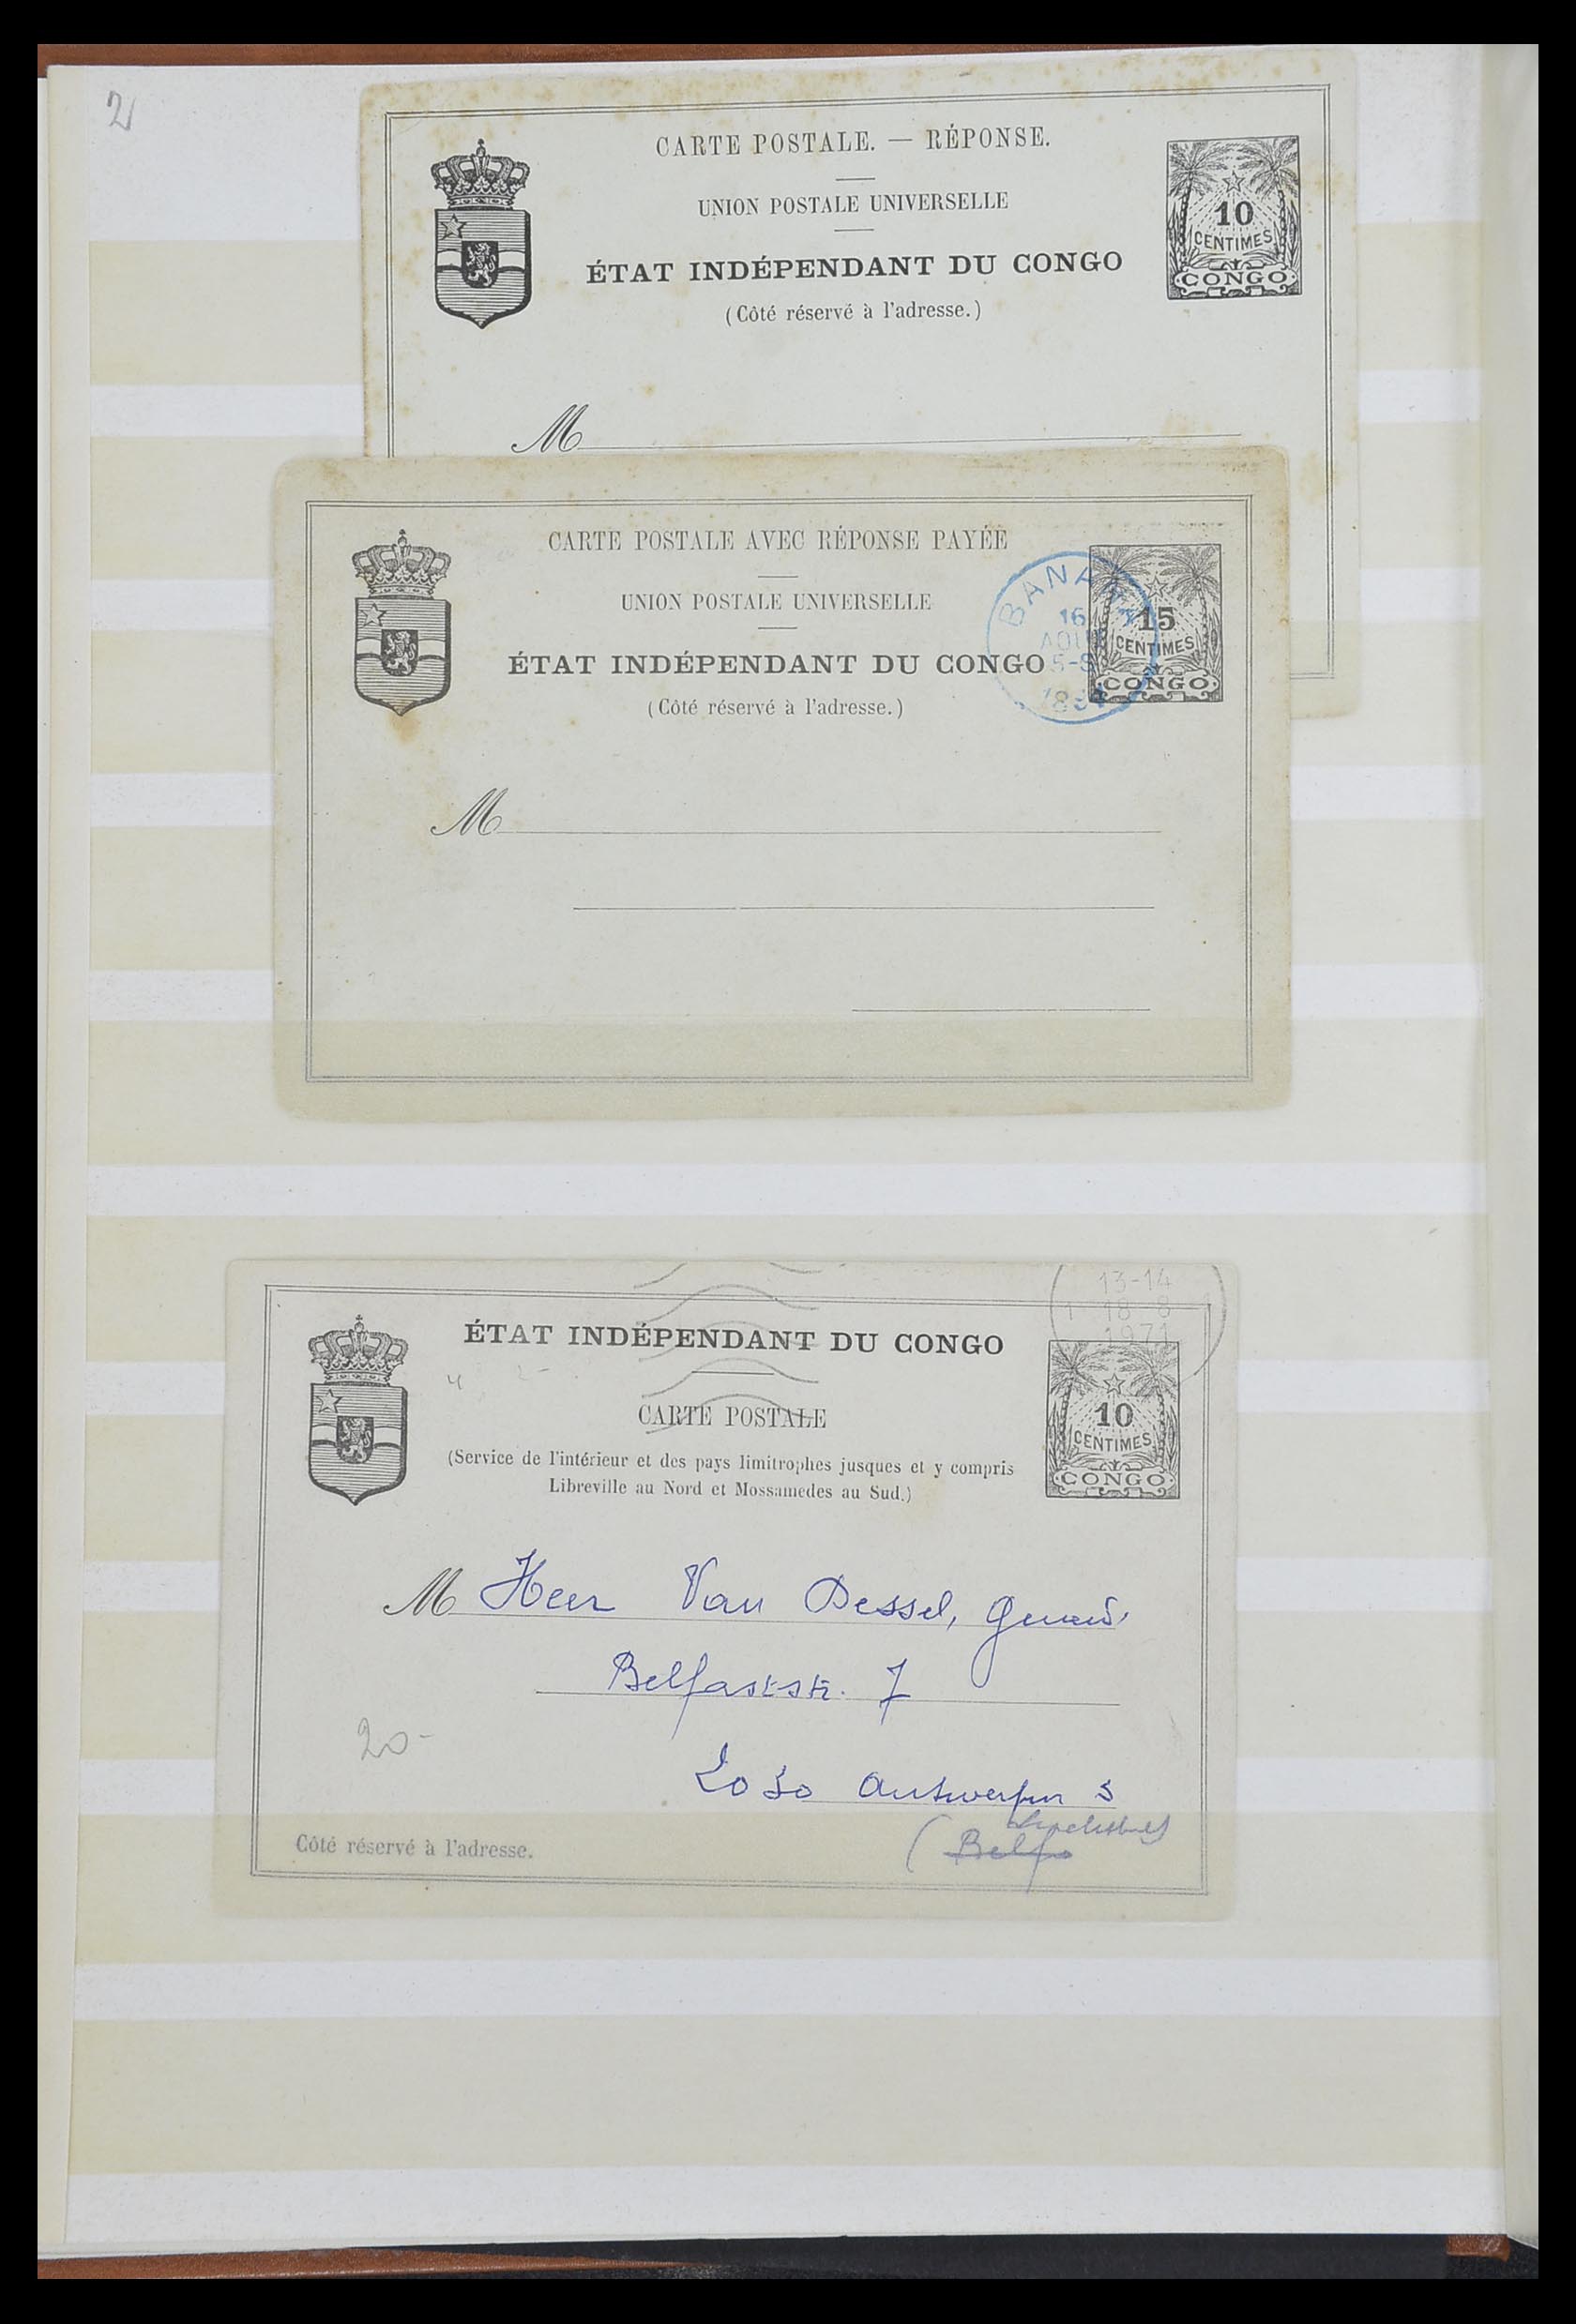 2
CARTE POSTALE. — RÉPONSE.
UNION POSTALE UNIVERSELLE
ÉTAT INDÉPENDANT DU CONGO
(Côté réservé à l'adresse.)
10
CENTIMES
CONGO
M
CARTE POSTALE AVEC RÉPONSE PAYÉE
UNION POSTALE UNIVERSELLE
ÉTAT INDÉPENDANT DU CONGO
(Côté réservé à l'adresse.)
BANANA
16
AOUT
15
CENTIMES
CONGO
M
13-14
18-8
1971
ÉTAT INDÉPENDANT DU CONGO
CARTE POSTALE
(Service de l'intérieur et des pays limitrophes jusques et y compris
Libreville au Nord et Mossamedes au Sud.)
10
CENTIMES
CONGO
M Heer Van Dessel,
Belfaststr. 7
2030 Antwerpen 3
20-
(Belf
Côté réservé à l'adresse.